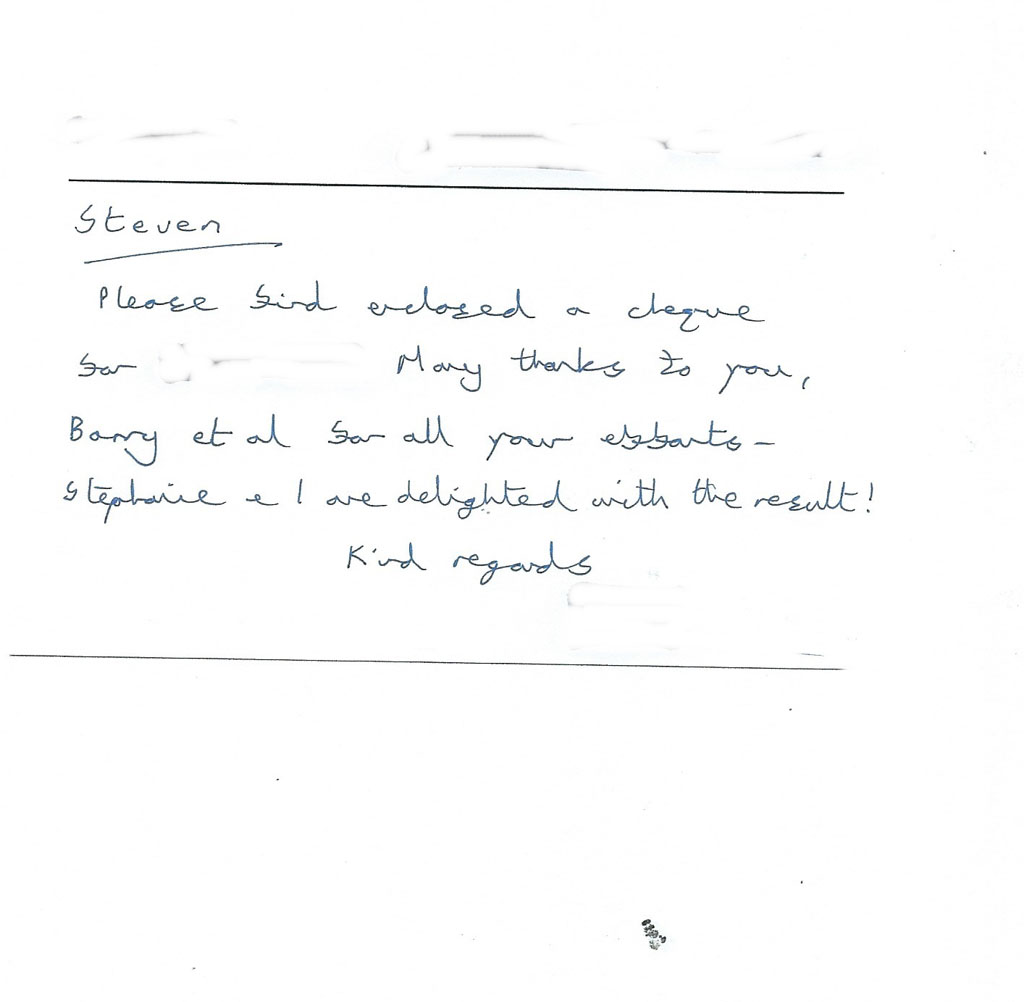 Steven
Please find enclosed a cheque
for Many thanks to you,
Barry et al for all your efforts -
Stephanie & I are delighted with the result!
Kind regards